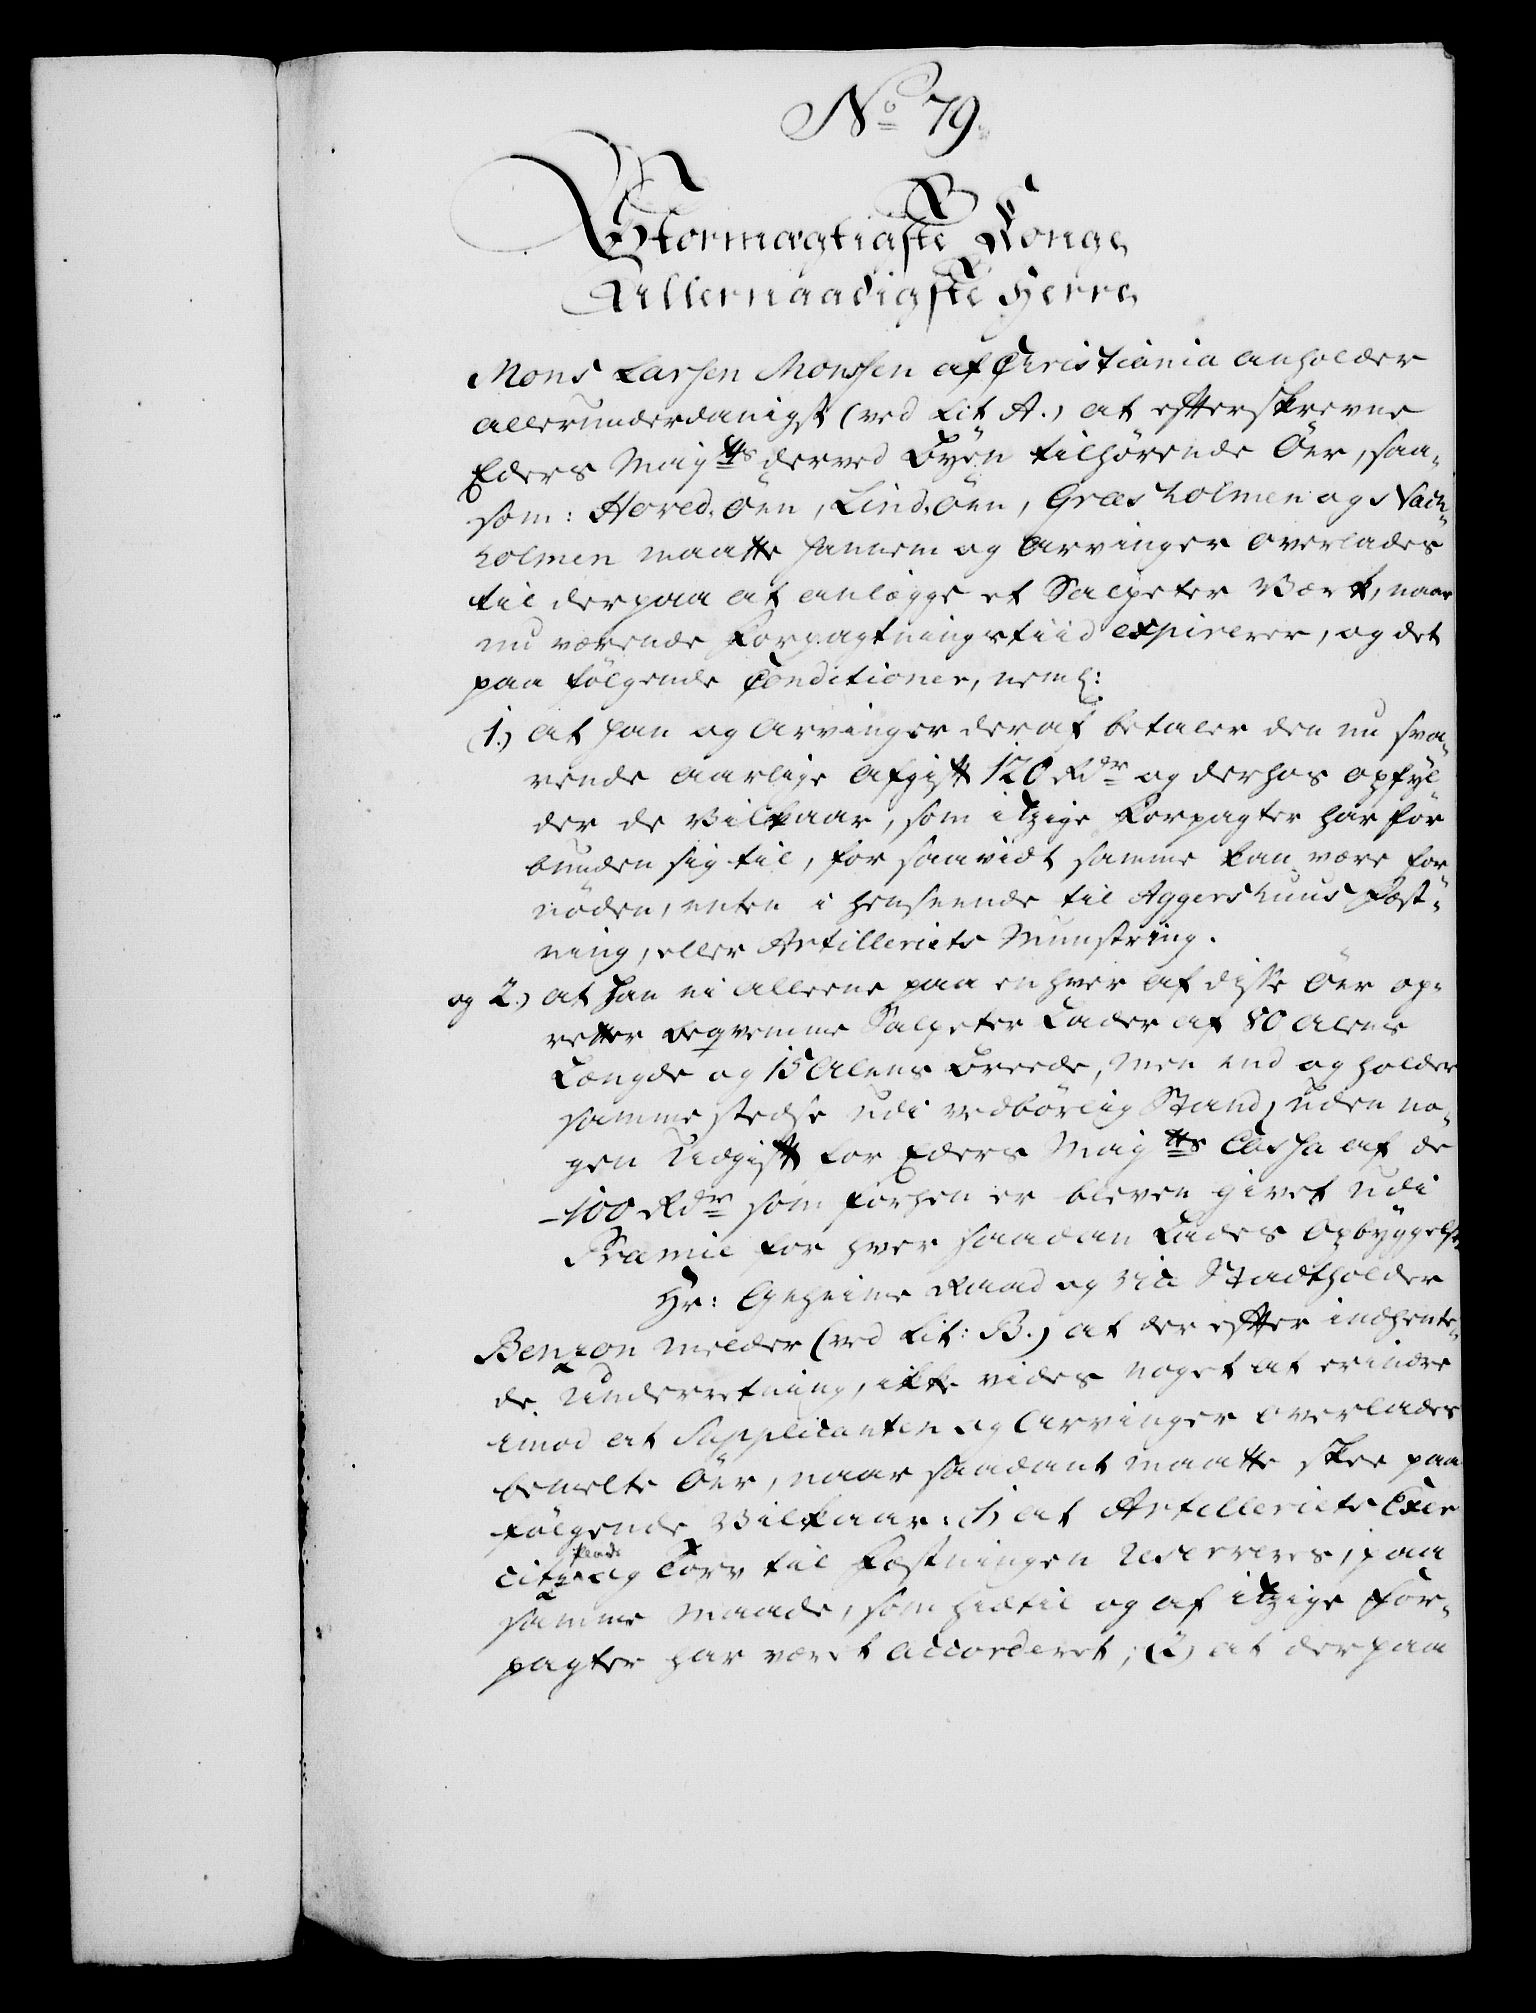 No 79.
Stormægtigste Konge
Allernaadigste Herre
Mons Larsen Monssen af Christiania anholder
allerunderdanigst (ved Lit A.) at efterskrevne
Eders Maytts derved Byen tilhørende Öer, saa-
som: Hoved-Öen, Lind-Öen, Græsholmen og Nach-
holmen maatte hannem og Arvinger overlades
til derpaa at anlægge et Salpeter Værk, naar
nu værende Forpagtningstiid expirerer, og det
paa følgende Conditioner, neml:
(1.) at han og Arvinger deraf betaler den nu sva-
rende aarlige Afgift 120 Rdr og derhos opfyl-
der de Vilkaar, som itzige Forpagter har for
bunden sig til, for saavidt samme kan være for-
nöden, enten i henseende til Aggershuus Fæst-
ning, eller Artilleriets Munstring.
og 2.) at han ei alleene paa enhver af disse Öer op-
retter beqvemme Salpeter Lader af 80 Alens
Længde og 15 Alens Breede, men end og holder
samme stedse udi vedbörlig Stand, uden no-
gen Udgift for Eders Maytts Cassa af de
100 Rdr som forhen er bleven givet udi
Præmie for hver saadan Lades Opbyggelse
Hr: Geheime Raad og Vice Stadtholder
Benzon melder (ved Lit: B.) at der efter indhente-
de Underretning, ikke vides noget at erindre
imod at Supplicanten og Arvinger overlades
bemelte Öer, naar saadant maatte skee paa
følgende Vilkaar: 1) at Artilleriets Exer
citie plads og Törv til Fæstningen reserveres, paa
samme Maade, som hidtil og af itzige For-
pagter har været accorderet; (2) at derpaa